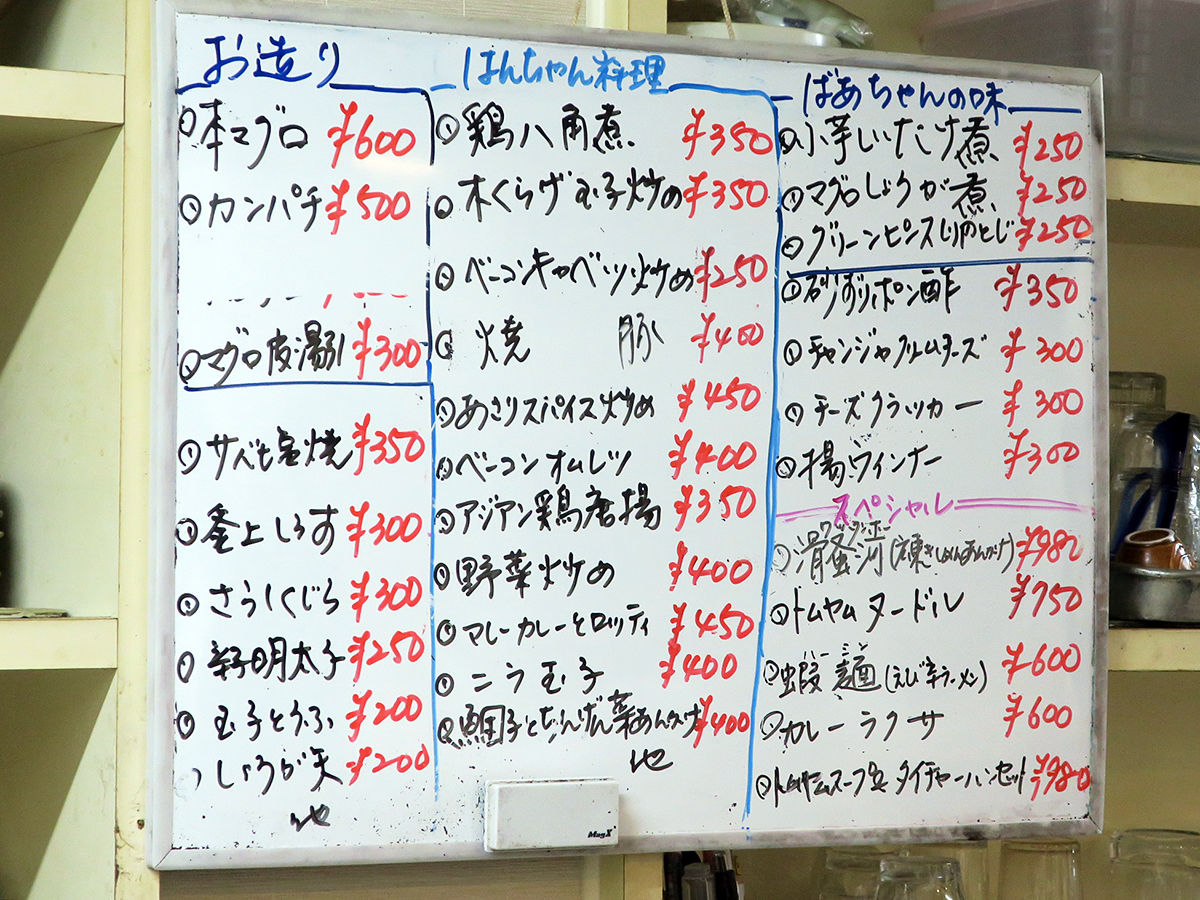 お造り
本マグロ ¥600
カンパチ ¥500
マグロ皮湯引 ¥300
サバも塩焼 ¥350
釜上しらす ¥300
さらしくじら ¥300
辛子明太子 ¥250
玉子とうふ ¥200
しょうが天 ¥200
他
はんちゃん料理
鶏八角煮 ¥350
木くらげ玉子炒め ¥350
ベーコンキャベツ炒め ¥250
焼豚 ¥400
あさりスパイス炒め ¥450
ベーコンオムレツ ¥400
アジアン鶏唐揚 ¥350
野菜炒め ¥400
マレーカレーとロッティ ¥450
ニラ玉子 ¥400
鯛子とちんげん菜あんかけ ¥400
他
ばあちゃんの味
小芋しいたけ煮 ¥250
マグロしょうが煮 ¥250
グリーンピンス ¥250
砂ずりポン酢 ¥350
チャンジャクリームチーズ ¥300
チーズクラッカー ¥300
揚ウィンナー ¥300
スペシャル
滑蛋河 ¥980
トムヤムヌードル ¥750
蝦麺(えび辛ラーメン) ¥600
カレーラクサ ¥600
トムヤムスープ&タイチャーハンセット ¥980
MagX